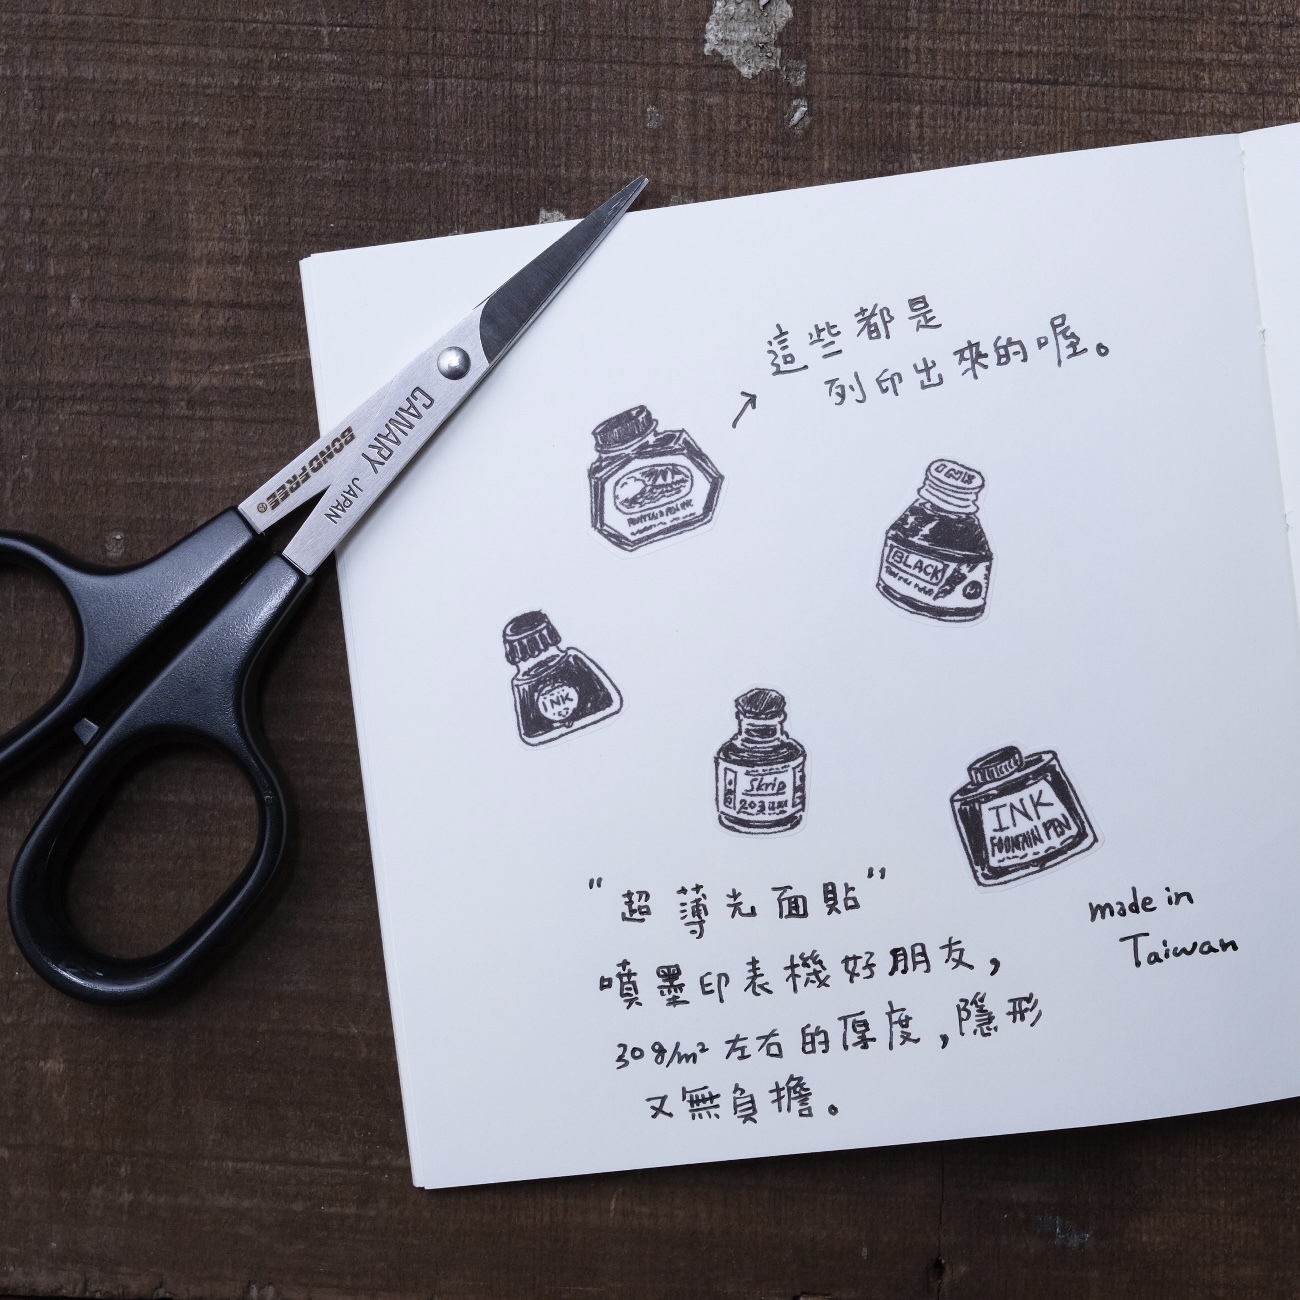 這些都是
列印出來的喔。
CANARY JAPAN
BONDFREE®
BLACK
INK
Skrip
INK
FOUNTAIN PEN
"超薄光面貼"
噴墨印表機好朋友，
30g/m² 左右的厚度，隱形
又無負擔。
made in
Taiwan